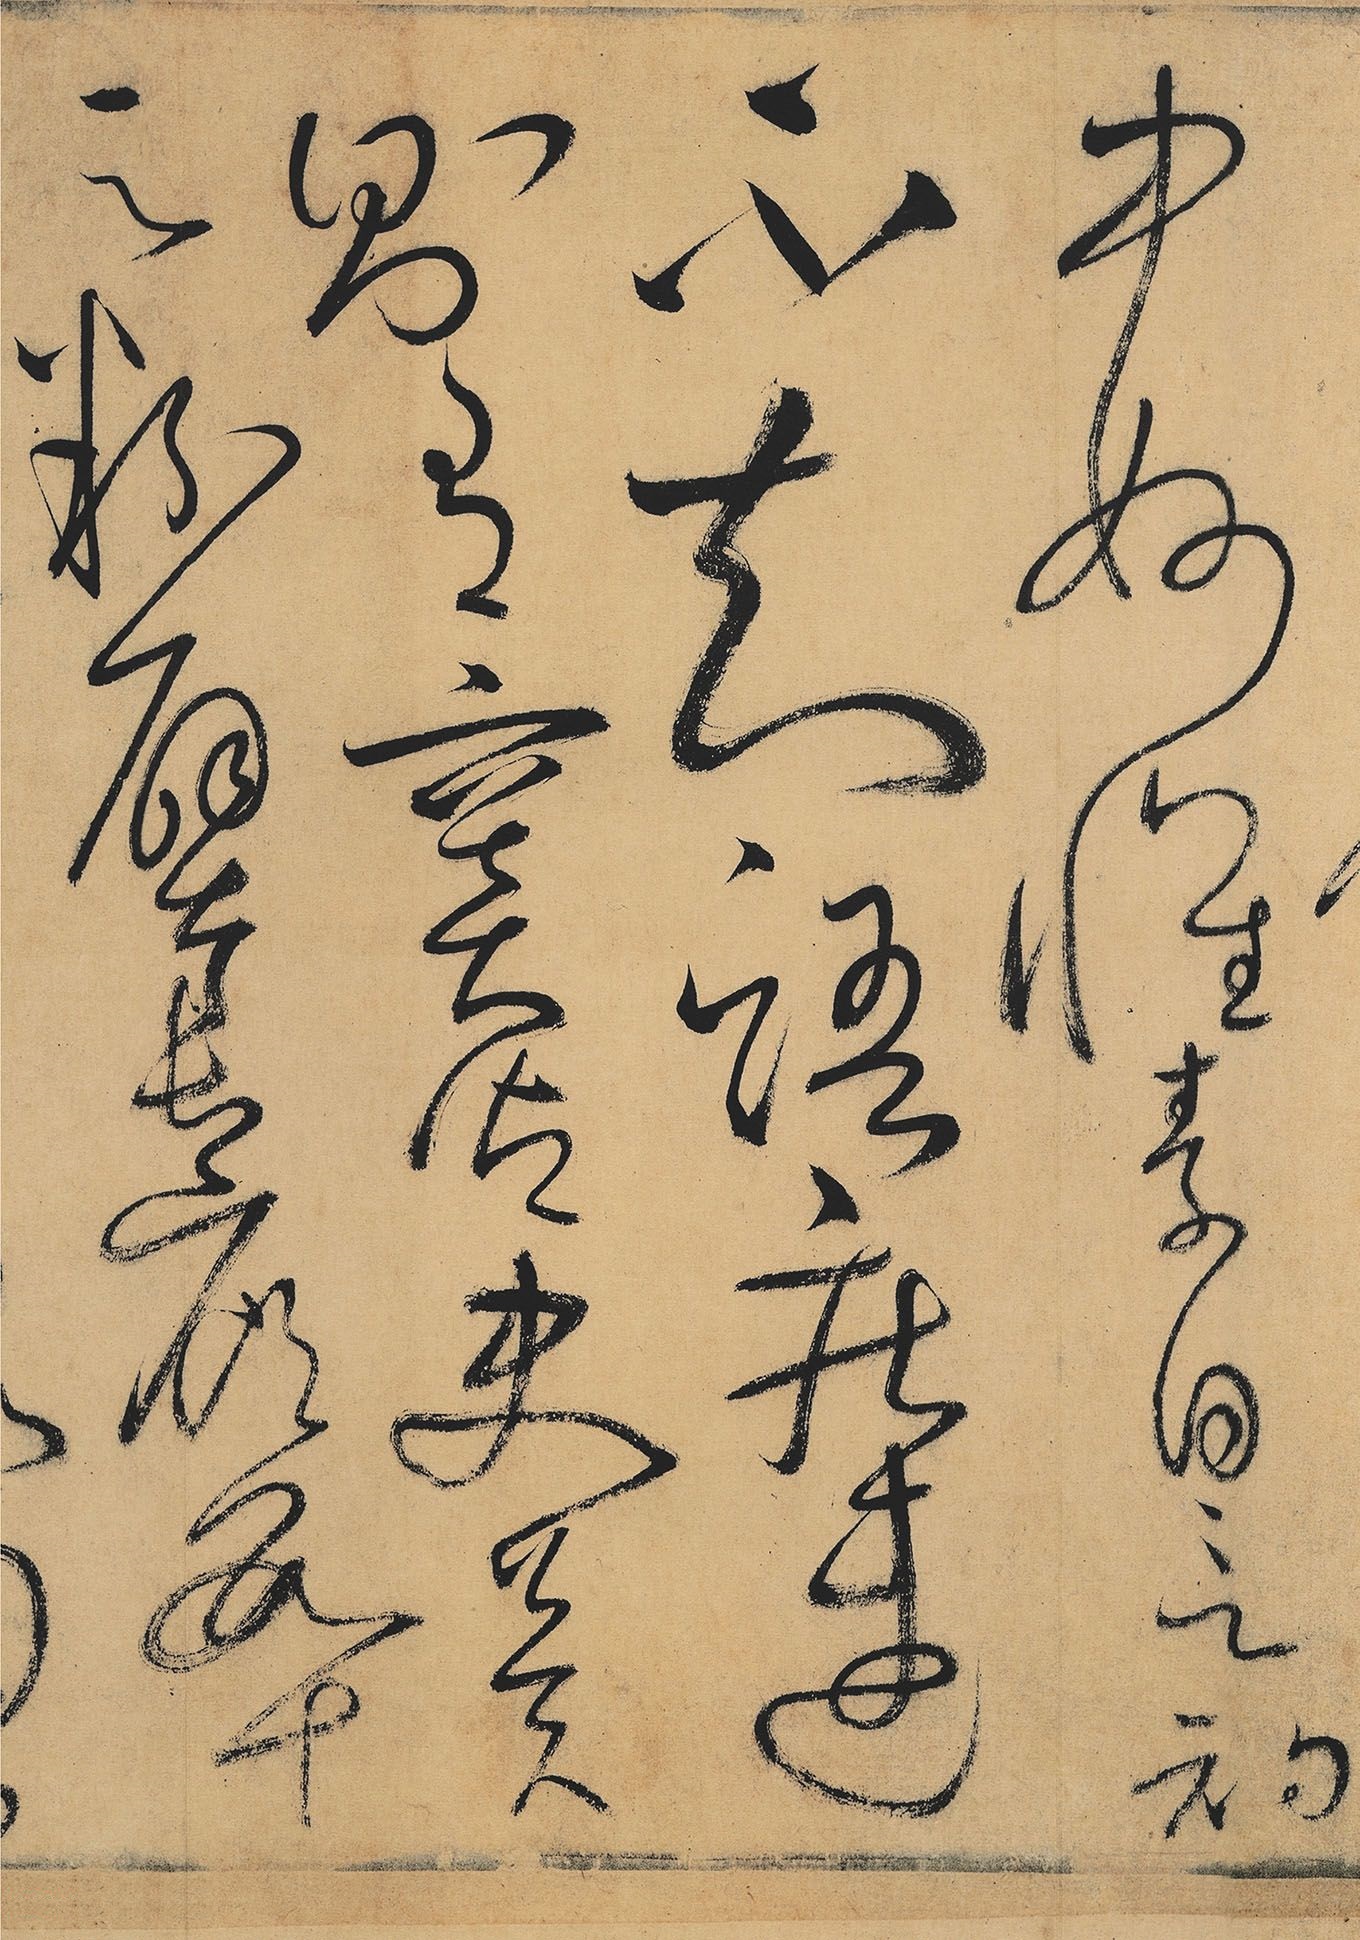 中妙懷素自言初
不知語疾迅
則有竇御史冀
云粉壁長廊數十